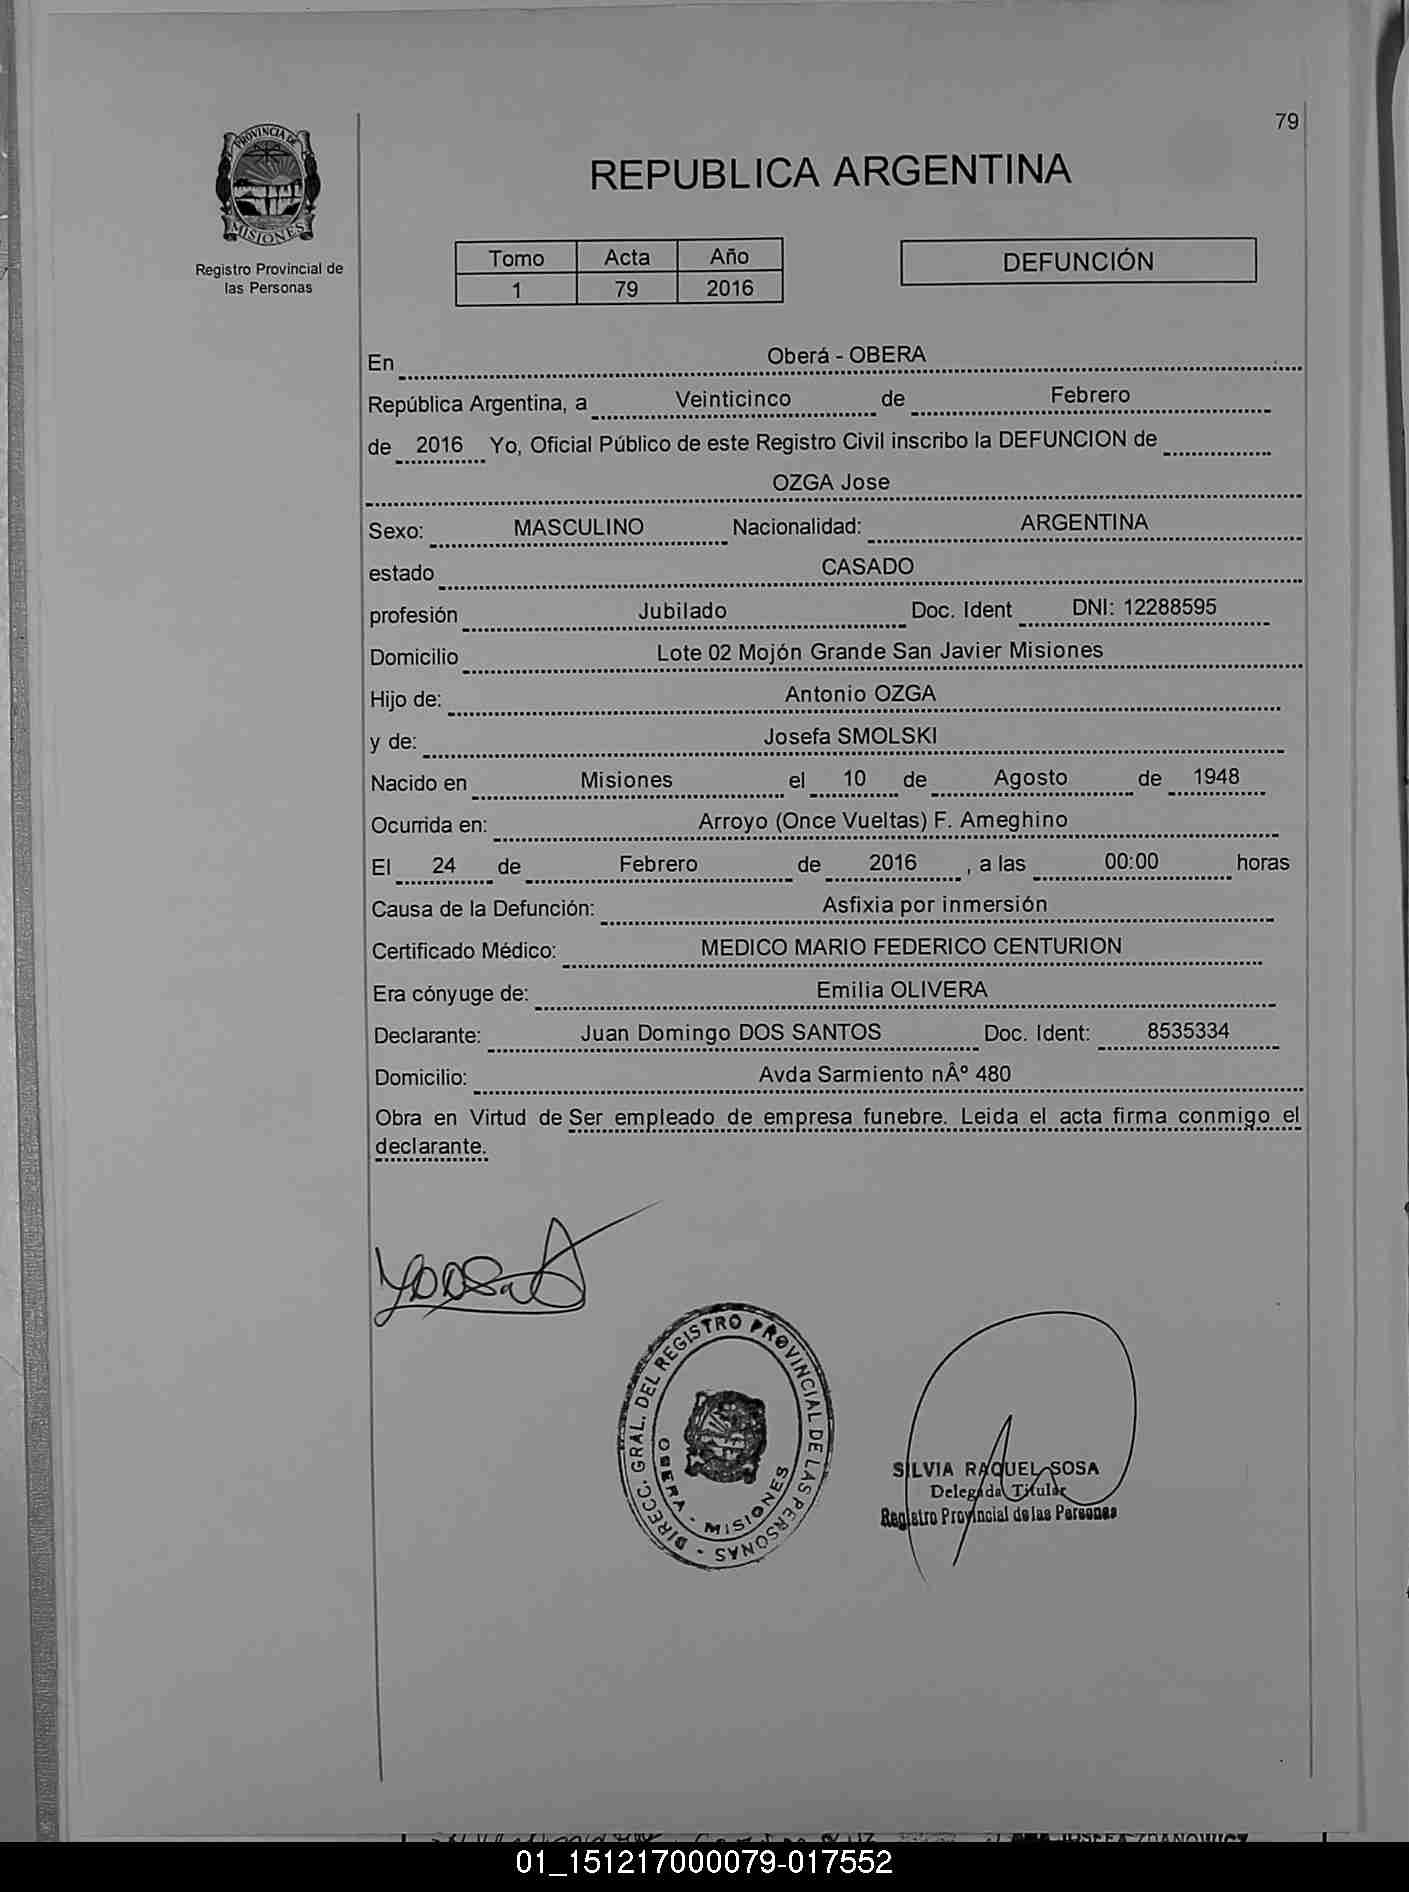 79
PROVINCIA DE
MISIONES
Registro Provincial de
las Personas
REPUBLICA ARGENTINA
Tomo Acta Año
1 79 2016
DEFUNCIÓN
En Oberá - OBERA
República Argentina, a Veinticinco de Febrero
de 2016 Yo, Oficial Público de este Registro Civil inscribo la DEFUNCION de
OZGA Jose
Sexo: MASCULINO Nacionalidad: ARGENTINA
estado CASADO
profesión Jubilado Doc. Ident DNI: 12288595
Domicilio Lote 02 Mojón Grande San Javier Misiones
Hijo de: Antonio OZGA
y de: Josefa SMOLSKI
Nacido en Misiones el 10 de Agosto de 1948
Ocurrida en: Arroyo (Once Vueltas) F. Ameghino
El 24 de Febrero de 2016 , a las 00:00 horas
Causa de la Defunción: Asfixia por inmersión
Certificado Médico: MEDICO MARIO FEDERICO CENTURION
Era cónyuge de: Emilia OLIVERA
Declarante: Juan Domingo DOS SANTOS Doc. Ident: 8535334
Domicilio: Avda Sarmiento nÂº 480
Obra en Virtud de Ser empleado de empresa funebre. Leida el acta firma conmigo el
declarante.
DIRECC. GRAL. DEL REGISTRO PROVINCIAL DE LAS PERSONAS -
OBERA - MISIONES
SILVIA RAQUEL SOSA
Delegada Titular
Registro Provincial de las Personas
01_151217000079-017552